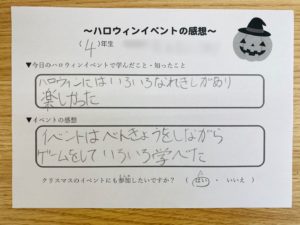 ～ハロウィンイベントの感想～
（4）年生
▼今日のハロウィンイベントで学んだこと・知ったこと
ハロウィンにはいろいろなれきしがあり
楽しかった
▼イベントの感想
イベントはべんきょうをしながら
ゲームをしていろいろ学べた
クリスマスのイベントにも参加したいですか？（はい・いいえ）